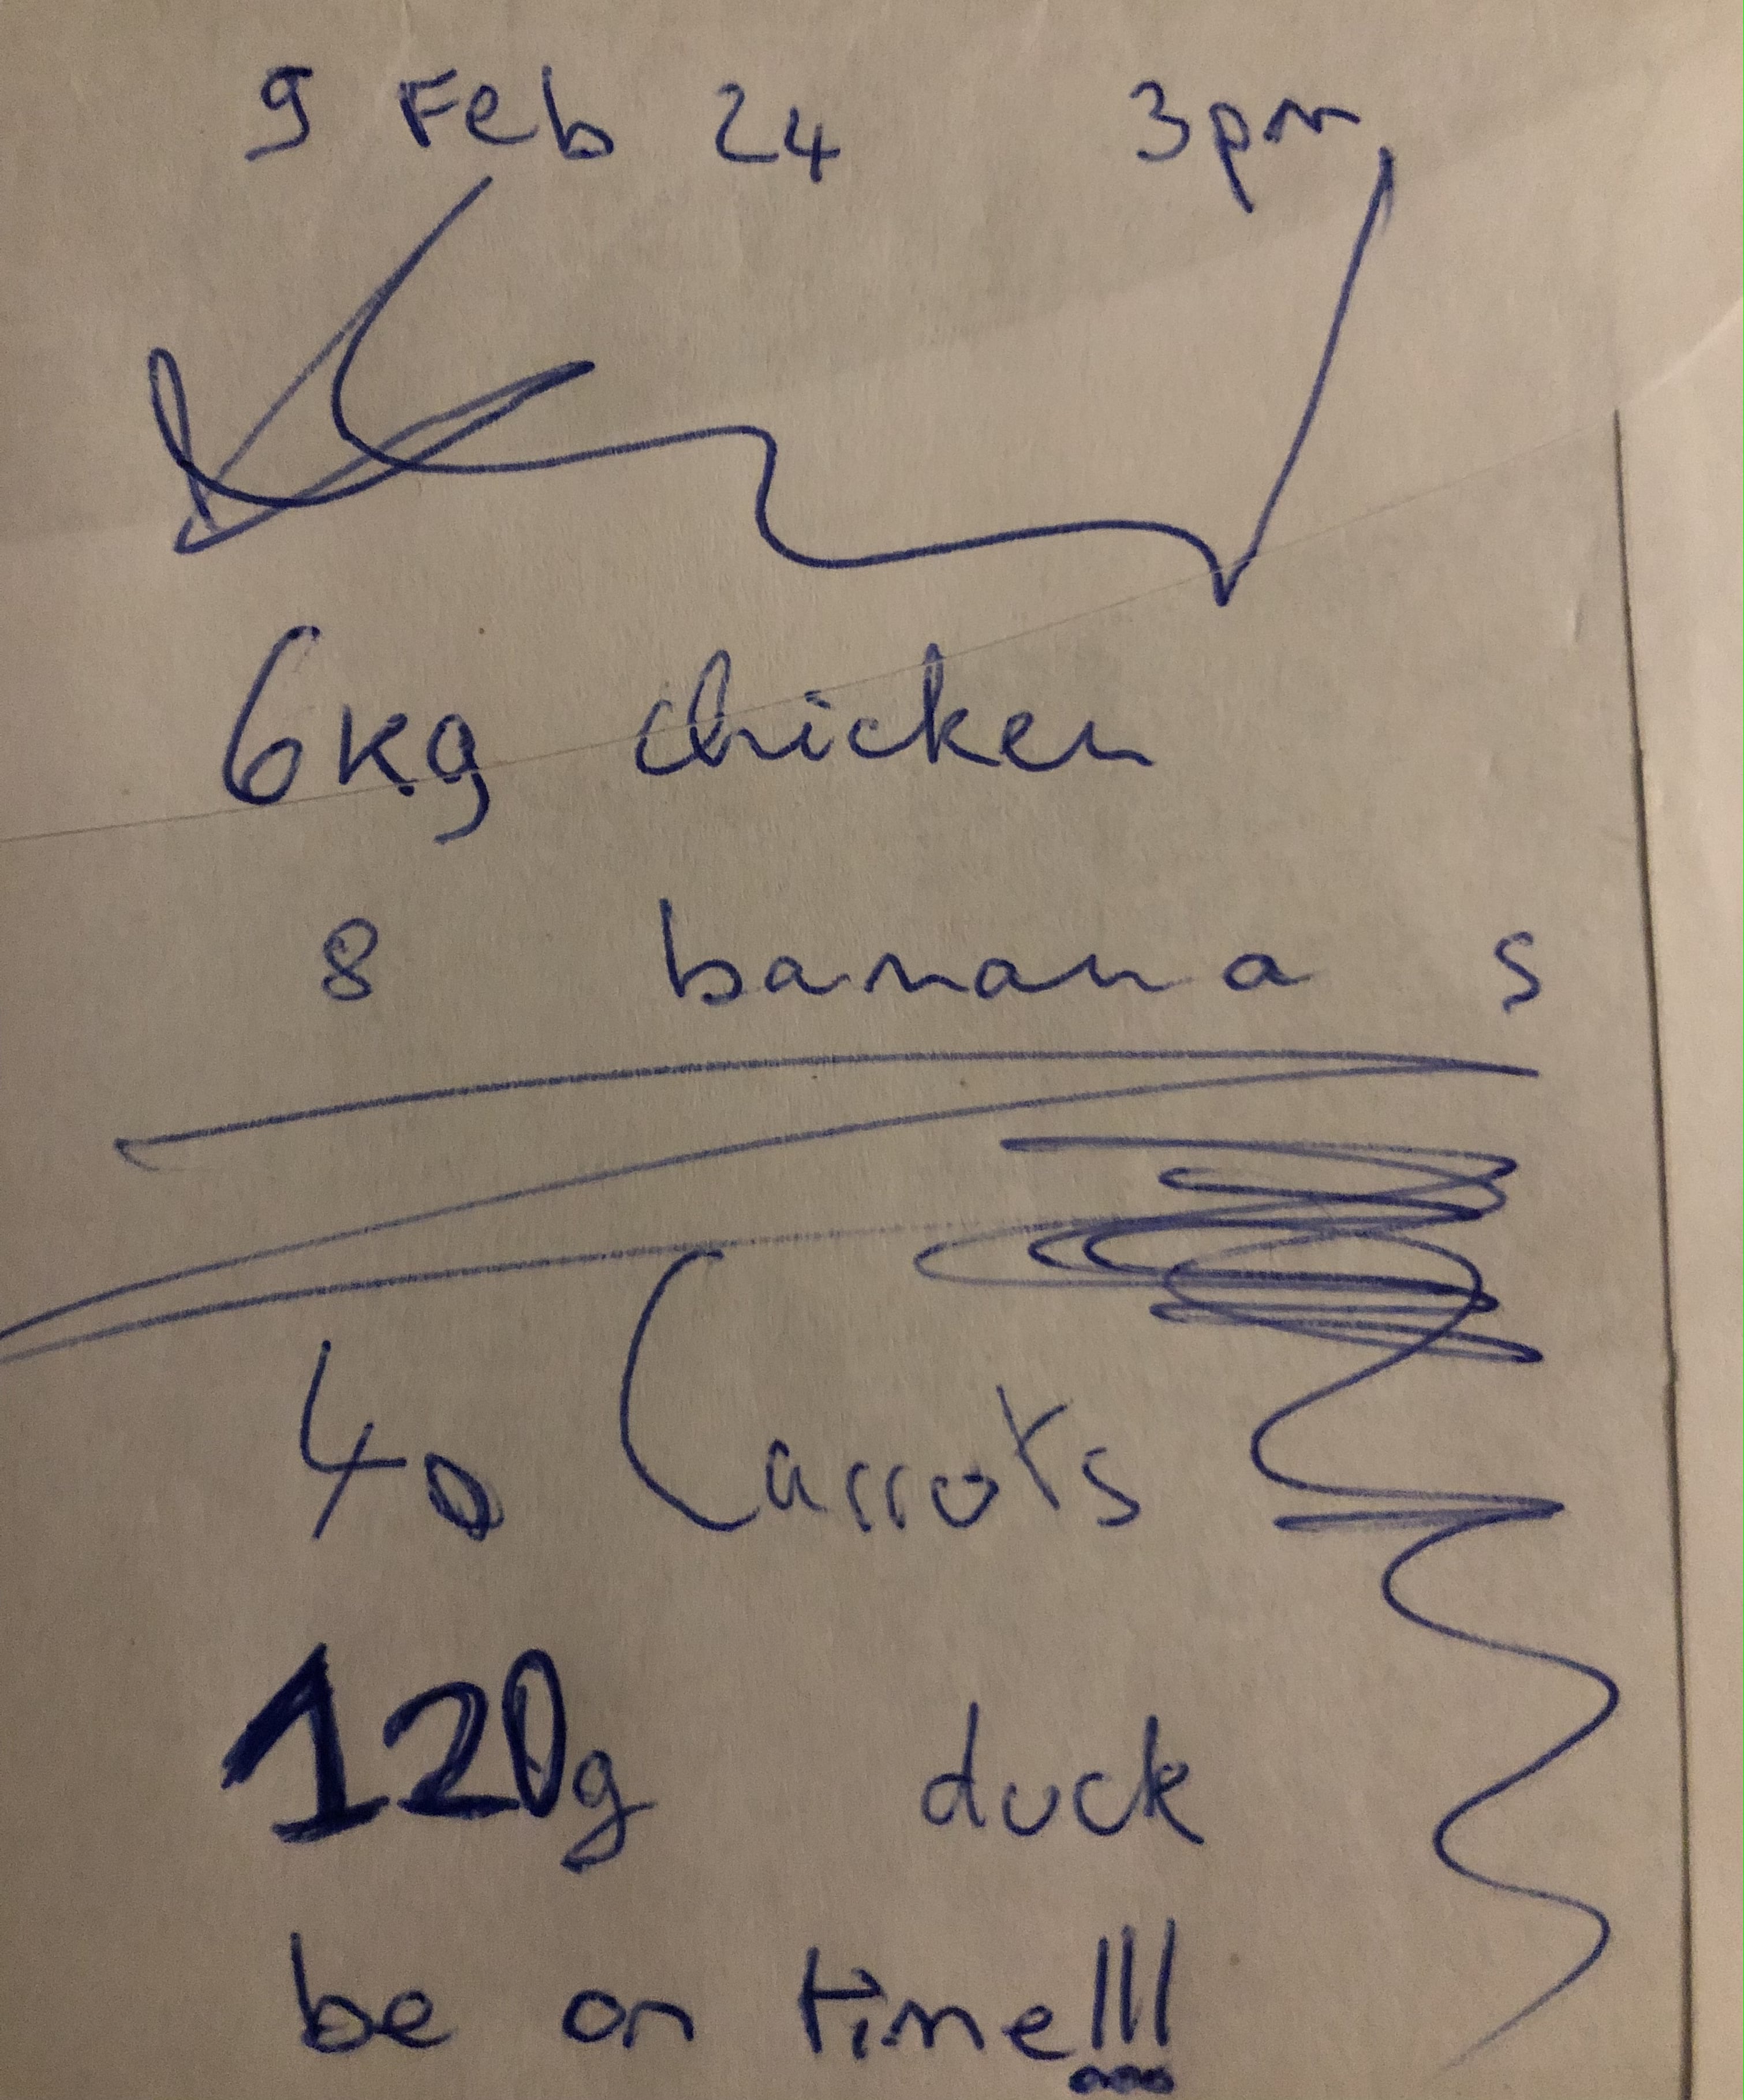 9 Feb 24 3pm
6kg chicken
8 bananas
40 Carrots
120g duck
be on time!!!